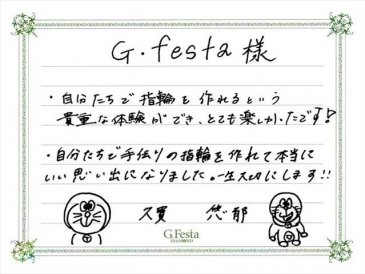 G.festa 様
・自分たちで指輪を作れるという
貴重な体験ができ、とても楽しかったです!
・自分たちで手作りの指輪を作れて本当に
いい思い出になりました。一生大切にします!!
久實 悠郁
G.Festa
DIAMOND